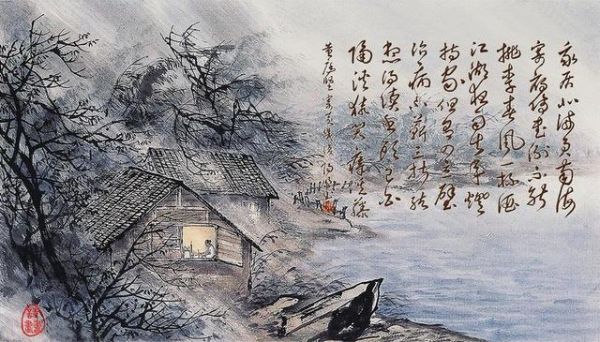 我居北海君南海
寄雁傳書謝不能
桃李春風一杯酒
江湖夜雨十年燈
持家但有四立壁
治病不蘄三折肱
想得讀書頭已白
隔溪猿哭瘴溪藤
黄庭堅